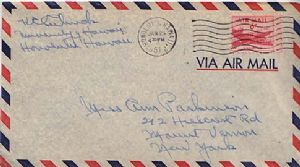 University of Hawaii
Honolulu, Hawaii
HONOLULU, HAWAII
1951
AIR MAIL
6¢
VIA AIR MAIL
Miss Ann Parkinson
242 Hillcrest Rd
Mount Vernon
New York